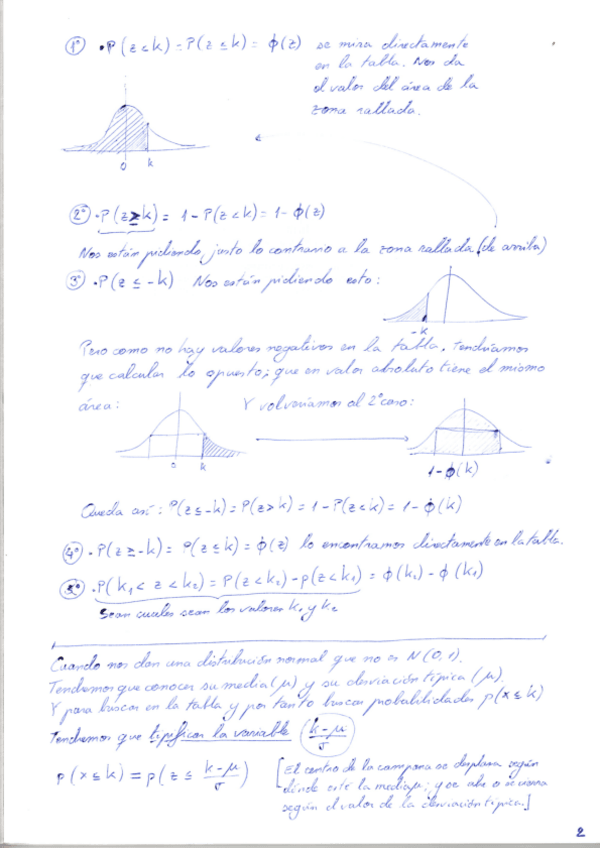 1º · P(z<k) = P(z≤k) = ϕ(z) se mira directamente
en la tabla. Nos da
el valor del área de la
zona rallada.
0 k
2º · P(z≥k) = 1-P(z<k) = 1-ϕ(z)
Nos están pidiendo, justo lo contrario a la zona rallada (de arriba)
3º · P(z ≤ -k) Nos están pidiendo esto:
-k
Pero como no hay valores negativos en la tabla. Tendríamos
que calcular lo opuesto; que en valor absoluto tiene el mismo
área: Y volveríamos al 2º caso:
0 k
1-ϕ(k)
Queda así: P(z≤-k) = P(z>k) = 1-P(z<k) = 1-ϕ(k)
4º · P(z≥-k) = P(z≤k) = ϕ(z) lo encontramos directamente en la tabla.
5º · P(k₁<z<k₂) = P(z<k₂) - p(z<k₁) = ϕ(k₂) - ϕ(k₁)
Sean cuales sean los valores k₁ y k₂
Cuando nos dan una distribución normal que no es N(0,1).
Tendremos que conocer su media (μ) y su desviación típica (μ).
Y para buscar en la tabla y por tanto buscar probabilidades p(x≤k)
Tendremos que tipificar la variable (k-μ/σ)
p(x≤k) = p(z ≤ k-μ/σ) [El centro de la campana se desplaza según
dónde esté la media μ; y se abre o se cierra
según el valor de la desviación típica.]
2